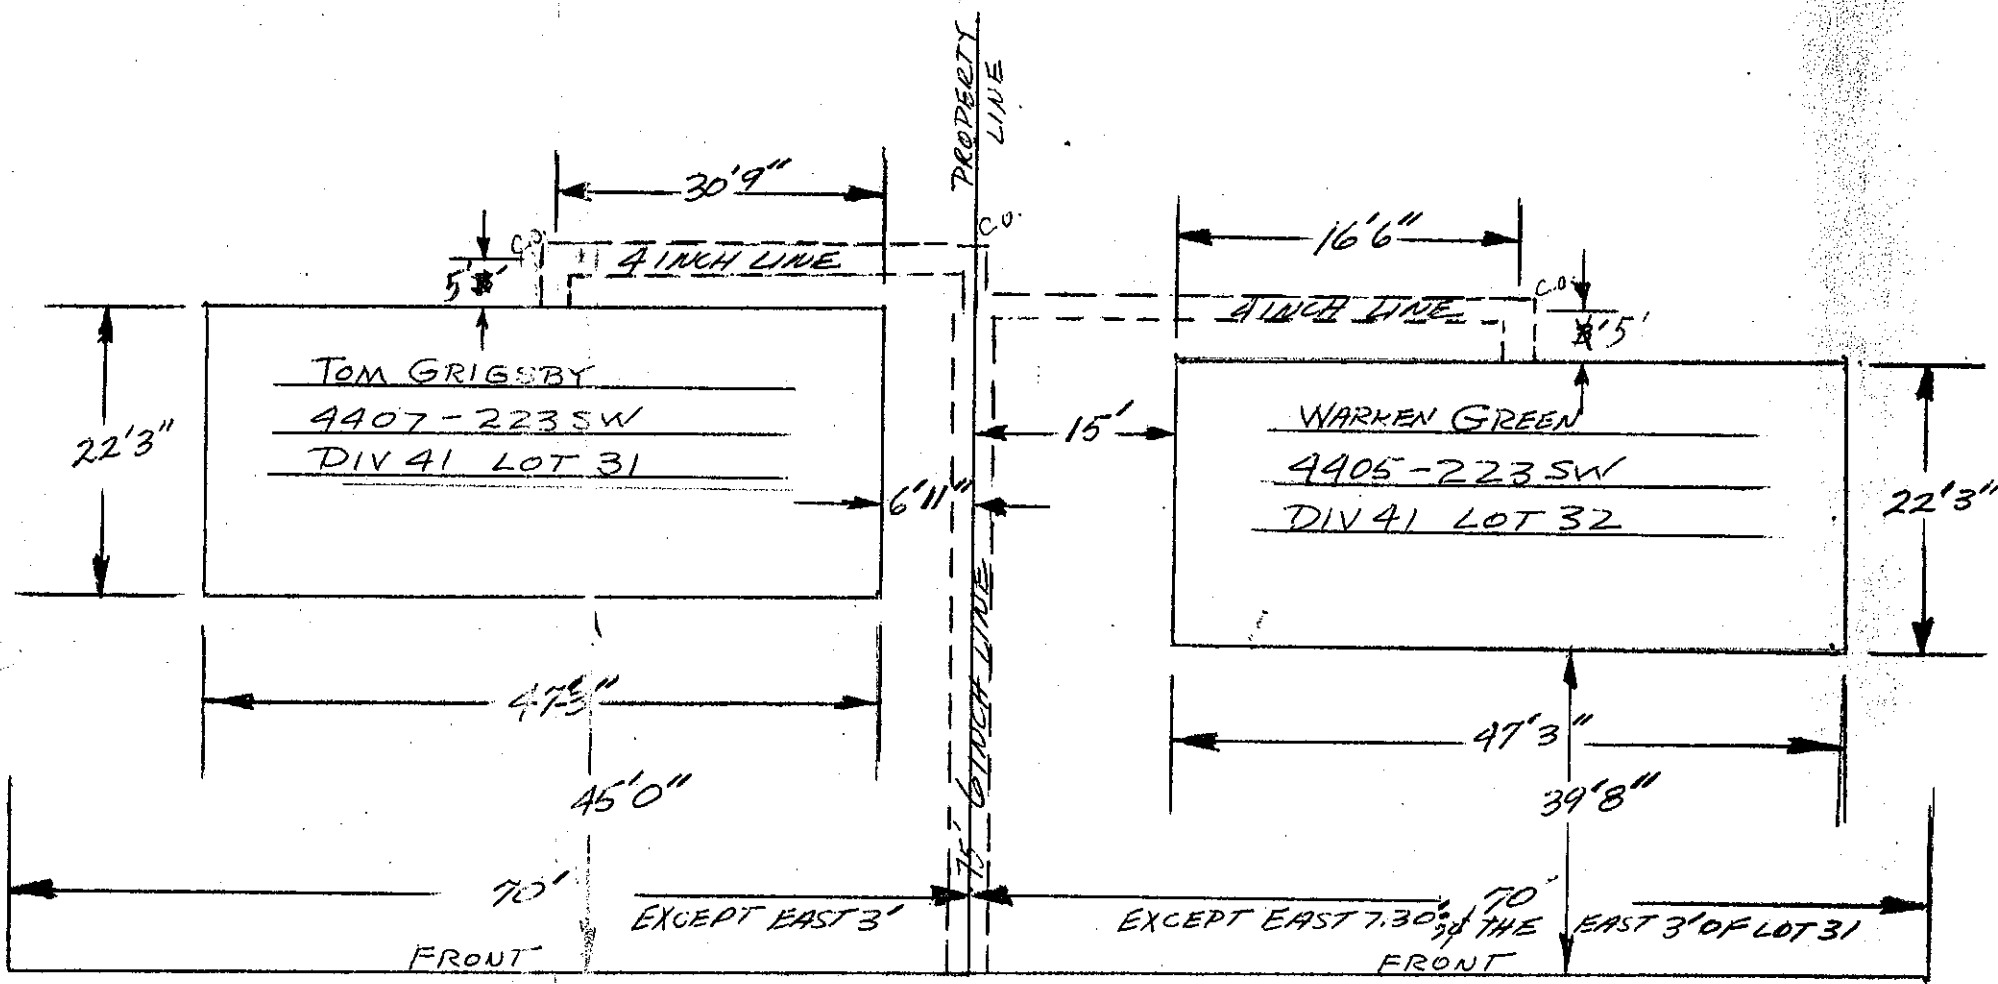 PROPERTY
LINE
30'9"
C.O.
C.O.
5'
4 INCH LINE
16'6"
C.O.
4 INCH LINE
5'
22'3"
TOM GRIGSBY
4407-223 SW
DIV 41 LOT 31
6'11"
15'
WARREN GREEN
4405-223 SW
DIV 41 LOT 32
22'3"
47'3"
6 INCH LINE
75'
47'3"
45'0"
39'8"
70'
EXCEPT EAST 3'
70'
EXCEPT EAST 7.30' & THE EAST 3' OF LOT 31
FRONT
FRONT